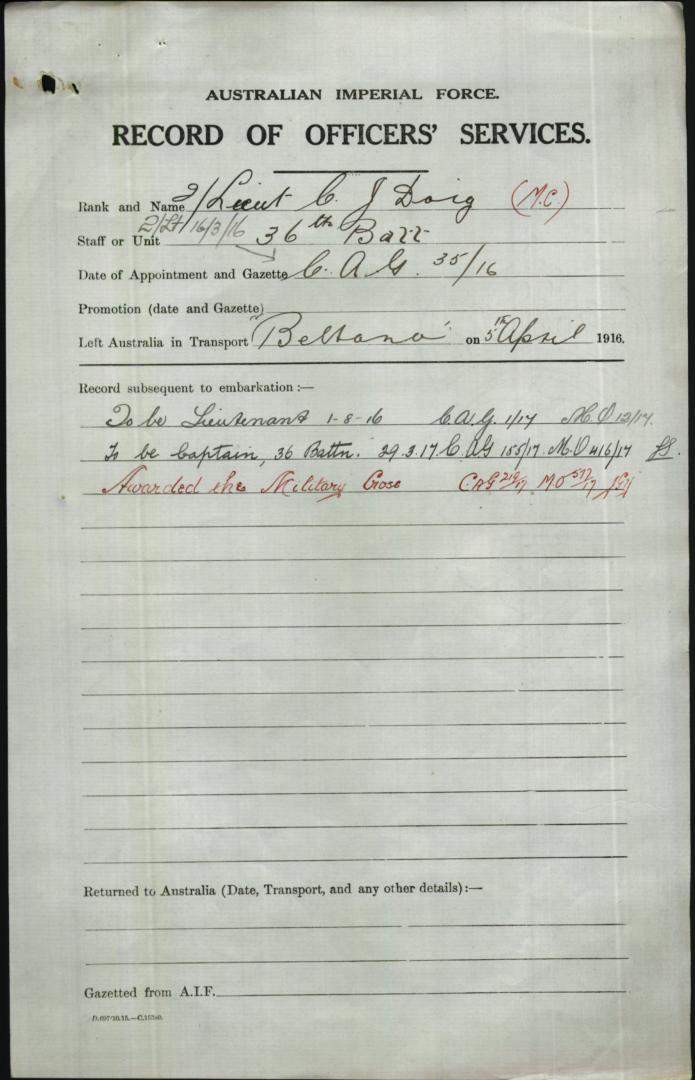 AUSTRALIAN IMPERIAL FORCE.
RECORD OF OFFICERS' SERVICES.
Rank and Name 2/Lieut C. J Doig (M.C.)
2/Lt 16/3/16
Staff or Unit 36th Batt
Date of Appointment and Gazette C. A. G. 35/16
Promotion (date and Gazette)
Left Australia in Transport "Beltana" on 5th April 1916.
Record subsequent to embarkation:—
To be Lieutenant 1-8-16 C.A.G. 1/17 M.O 12/17.
To be Captain, 36 Battn. 29.3.17. C.A.G 155/17. M.O 416/17
Awarded the Military Cross C.A.G 219/17 M.O 577/17
Returned to Australia (Date, Transport, and any other details):—
Gazetted from A.I.F.